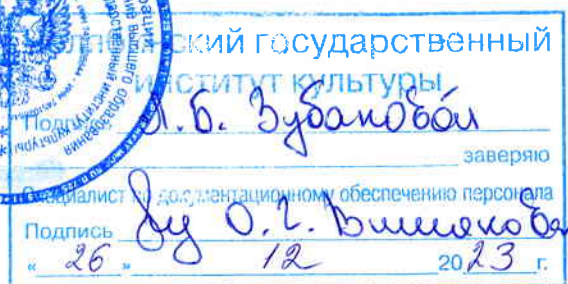 ский государственный
институт культуры
Подпись Л.Б. Зубановой
заверяю
Специалист по документационному обеспечению персонала
Подпись О.Г. Вишнякова
« 26 » 12 20 23 г.